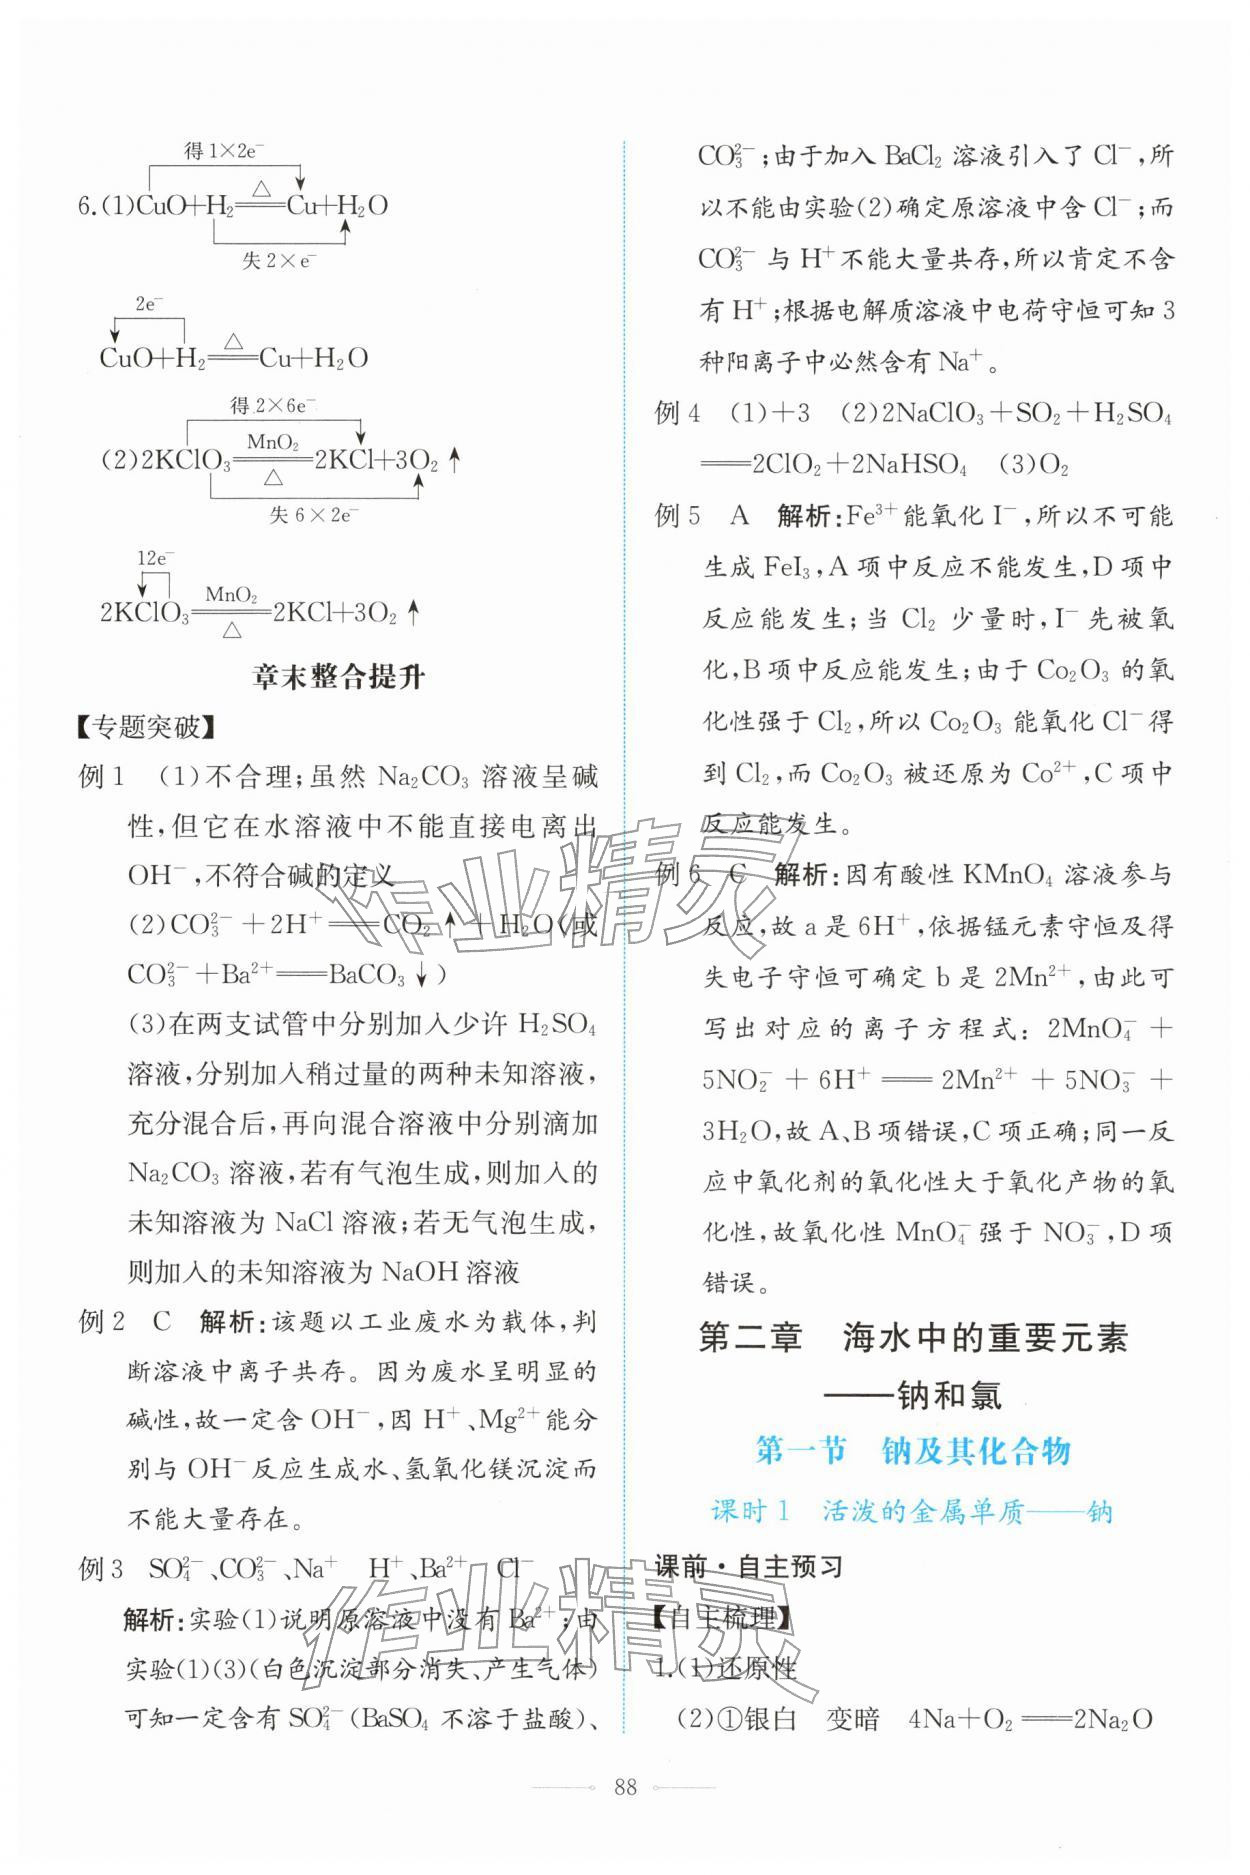 得1×2e⁻
6.(1)CuO+H₂ =△= Cu+H₂O
失2×e⁻
2e⁻
CuO+H₂ =△= Cu+H₂O
得 2×6e⁻
(2)2KClO₃ =MnO₂/△= 2KCl+3O₂↑
失6×2e⁻
12e⁻
2KClO₃ =MnO₂/△= 2KCl+3O₂↑
章末整合提升
【专题突破】
例1 (1)不合理;虽然 Na₂CO₃ 溶液呈碱
性,但它在水溶液中不能直接电离出
OH⁻,不符合碱的定义
(2)CO₃²⁻+2H⁺══CO₂↑+H₂O(或
CO₃²⁻+Ba²⁺══BaCO₃↓)
(3)在两支试管中分别加入少许 H₂SO₄
溶液,分别加入稍过量的两种未知溶液,
充分混合后,再向混合溶液中分别滴加
Na₂CO₃ 溶液,若有气泡生成,则加入的
未知溶液为 NaCl 溶液;若无气泡生成,
则加入的未知溶液为 NaOH 溶液
例2 C 解析:该题以工业废水为载体,判
断溶液中离子共存。因为废水呈明显的
碱性,故一定含 OH⁻,因 H⁺、Mg²⁺能分
别与 OH⁻反应生成水、氢氧化镁沉淀而
不能大量存在。
例3 SO₄²⁻、CO₃²⁻、Na⁺ H⁺、Ba²⁺ Cl⁻
解析:实验(1)说明原溶液中没有 Ba²⁺;由
实验(1)(3)(白色沉淀部分消失、产生气体)
可知一定含有 SO₄²⁻(BaSO₄ 不溶于盐酸)、
CO₃²⁻;由于加入 BaCl₂ 溶液引入了 Cl⁻,所
以不能由实验(2)确定原溶液中含 Cl⁻;而
CO₃²⁻ 与 H⁺不能大量共存,所以肯定不含
有 H⁺;根据电解质溶液中电荷守恒可知 3
种阳离子中必然含有 Na⁺。
例4 (1)+3 (2)2NaClO₃+SO₂+H₂SO₄
══2ClO₂+2NaHSO₄ (3)O₂
例5 A 解析:Fe³⁺能氧化 I⁻,所以不可能
生成 FeI₃,A 项中反应不能发生,D 项中
反应能发生;当 Cl₂ 少量时,I⁻先被氧
化,B项中反应能发生;由于 Co₂O₃ 的氧
化性强于 Cl₂,所以 Co₂O₃ 能氧化 Cl⁻得
到 Cl₂,而 Co₂O₃ 被还原为 Co²⁺,C 项中
反应能发生。
例6 C 解析:因有酸性 KMnO₄ 溶液参与
反应,故 a 是 6H⁺,依据锰元素守恒及得
失电子守恒可确定 b 是 2Mn²⁺,由此可
写出对应的离子方程式:2MnO₄⁻+
5NO₂⁻+6H⁺══2Mn²⁺+5NO₃⁻+
3H₂O,故 A、B项错误,C 项正确;同一反
应中氧化剂的氧化性大于氧化产物的氧
化性,故氧化性 MnO₄⁻强于 NO₃⁻,D 项
错误。
第二章 海水中的重要元素
——钠和氯
第一节 钠及其化合物
课时1 活泼的金属单质——钠
课前·自主预习
【自主梳理】
1.(1)还原性
(2)①银白 变暗 4Na+O₂══2Na₂O
88
作业精灵
作业精灵